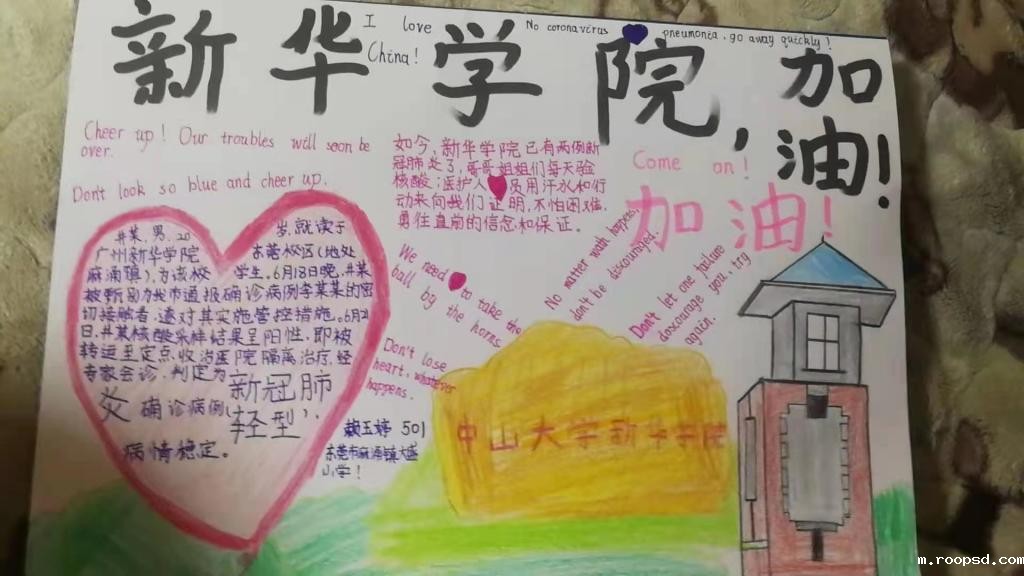 新华学院,加油!
I love China!
No coronavirus pneumonia, go away quickly!
Cheer up! Our troubles will soon be
over.
Don't look so blue and cheer up.
如今,新华学院已有两例新
冠肺炎了,哥哥姐姐们每天验
核酸;医护人员用汗水和行
动来向我们证明,不怕困难,
勇往直前的信念和保证。
Come on!
加油!
井某,男,20岁,就读于
广州新华学院东莞校区(地处
麻涌镇),为该校学生。6月18日晚,井某
被判别为我市通报确诊病例李某某的密
切接触者,遂对其实施管控措施。6月21
日,井某核酸采样结果呈阳性,即被
转运至定点收治医院隔离治疗,经
专家会诊,判定为新冠肺
炎确诊病例(轻型),
病情稳定。
We need to take the
ball by the horns.
Don't lose
heart, whatever
happens.
No matter what happens,
don't be discouraged.
Don't let one failure
doscourage you, try
again.
玉婷 501
东莞市麻涌镇大盛
小学!
中山大学新华学院
m.roopsd.com